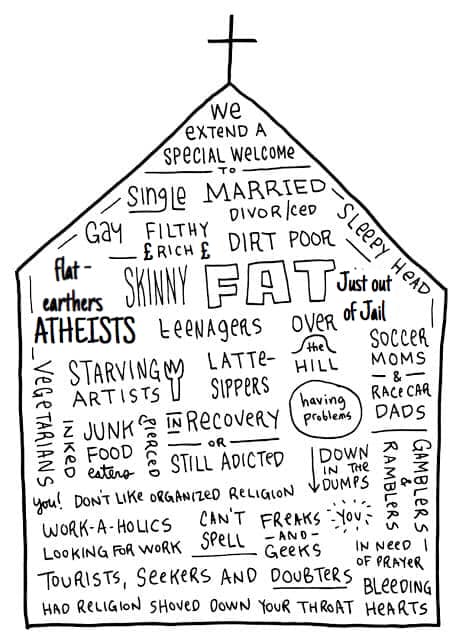 We
EXTEND A
SPECIAL WELCOME
TO
Single MARRIED
DIVOR/CED
Gay FILTHY
£RICH£ DIRT POOR
SLEEPY HEAD
flat-
earthers
SKINNY FAT
Just out
of Jail
ATHEISTS teenagers OVER
the
HILL
SOCCER
MOMS
&
RACE CAR
DADS
VEGETARIANS
STARVING
ARTISTS
LATTE-
SIPPERS
having
problems
INKED
JUNK
FOOD
eaters
PIERCED
IN RECOVERY
OR
STILL ADICTED
DOWN
IN THE
DUMPS
GAMBLERS
&
RAMBLERS
you! DON'T LIKE ORGANIZED RELIGION
WORK-A-HOLICS
LOOKING FOR WORK
CAN'T
SPELL
FREAKS
-AND-
GEEKS
YOU
IN NEED
OF PRAYER
TOURISTS, SEEKERS AND DOUBTERS
BLEEDING
HEARTS
HAD RELIGION SHOVED DOWN YOUR THROAT